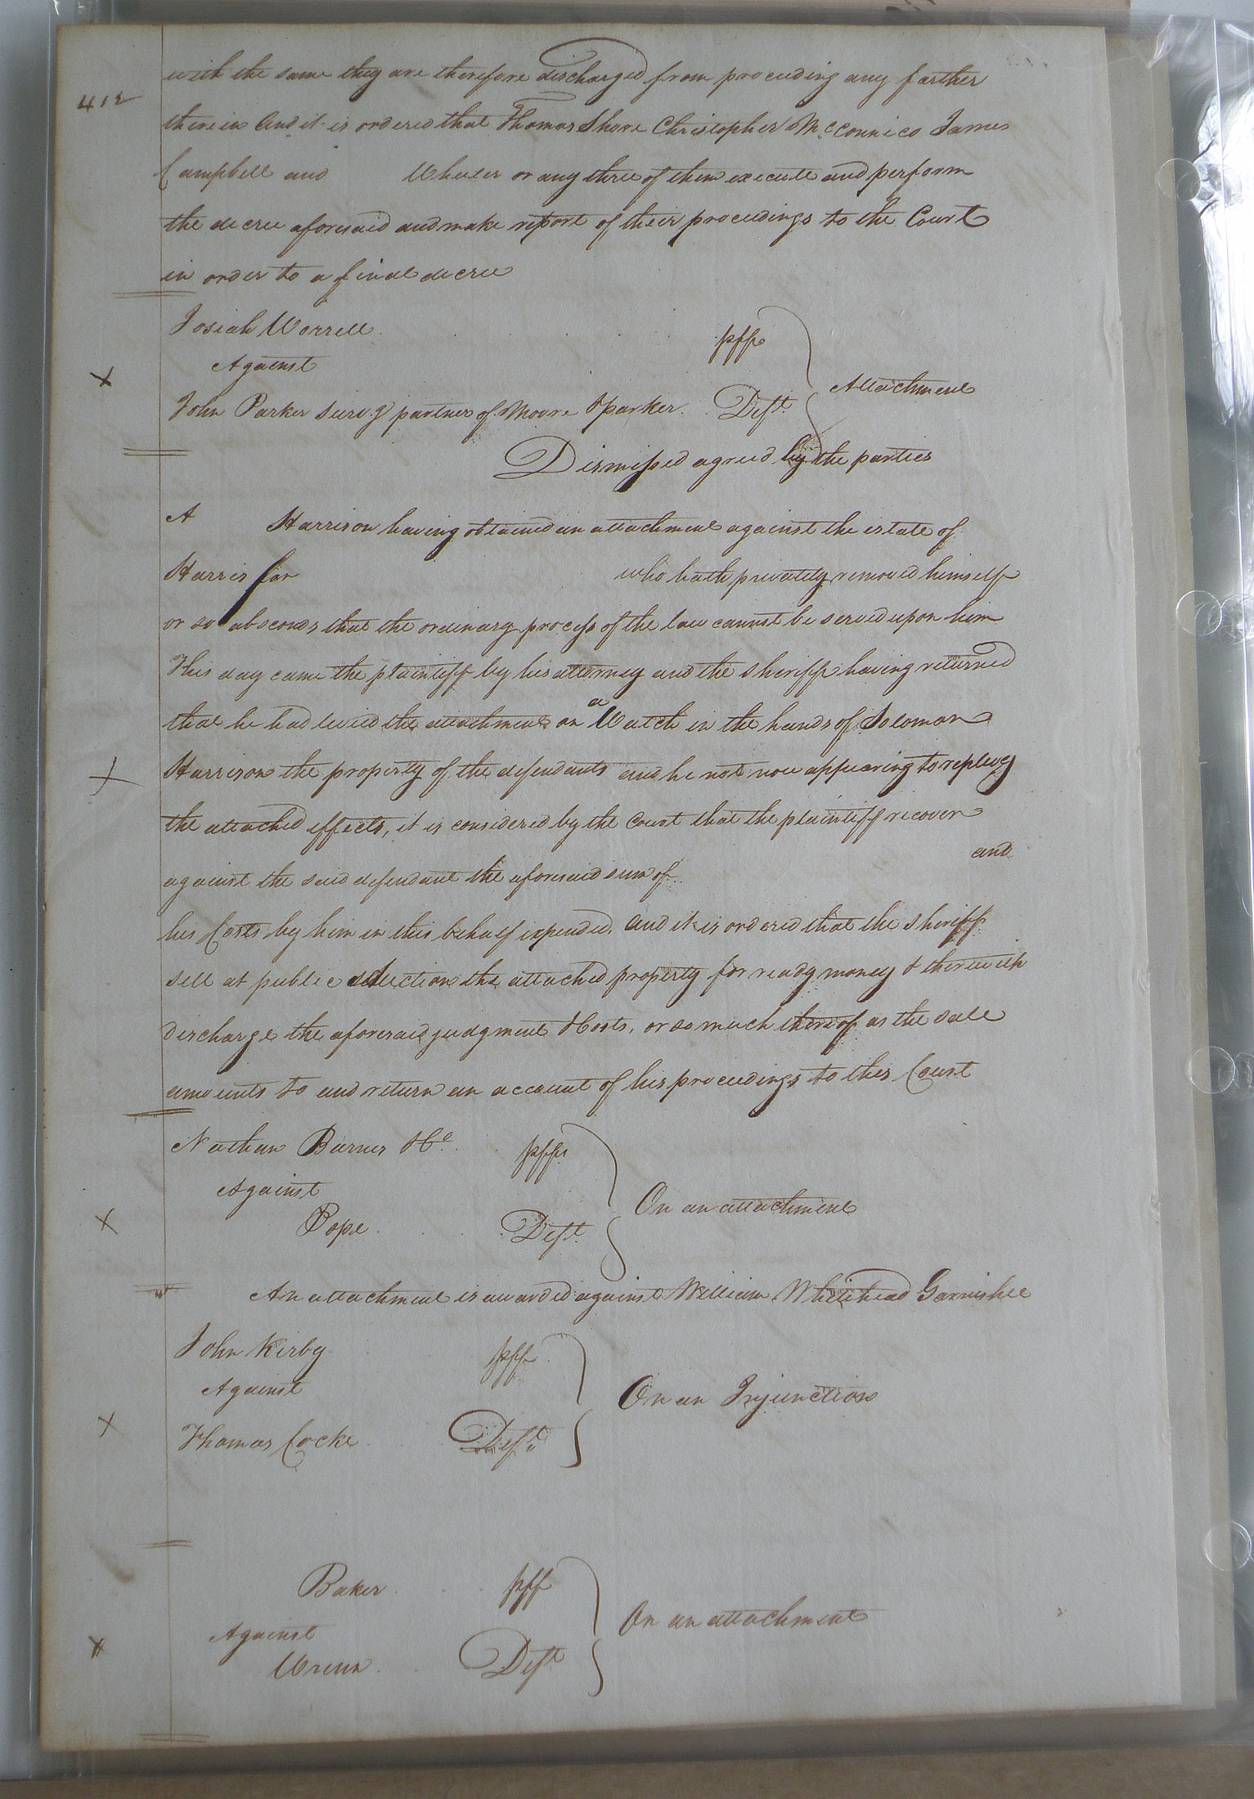 412
with the same they are therefore discharged from proceeding any farther
therein And it is ordered that Thomas Shore Christopher McConnico James
Campbell and Wheeler or any three of them execute and perform
the decree aforesaid and make report of their proceedings to the Court
in order to a final decree
Josiah Worrell plf
Against
Attachment
John Parker survg partner of Moore & parker Deft
Dismissed agreed by the parties
A Harrison having obtained an attachment against the estate of
Harris for who hath privately removed himself
or so absconds that the ordinary process of the law cannot be served upon him
This day came the plaintiff by his attorney and the sheriff having returned
that he had levied the attachment on a Watch in the hands of Solomon
Harrison the property of the defendants and he not now appearing to replevy
the attached effects, it is considered by the Court that the plaintiff recover
against the said defendant the aforesaid sum of and
his Costs by him in this behalf expended. And it is ordered that the sheriff
sell at public auction the attached property for ready money & therewith
discharge the aforesaid judgment & Costs, or so much thereof as the sale
amounts to and return an account of his proceedings to this Court
Nathan Barnes & Co plf
Against
On an attachment
Pope Deft
An attachment is awarded against William Whitehead Garnishee
John Kirby plf
Against
On an Injunction
Thomas Cocke Deft
Baker plf
On an attachment
Against
Wrenn Deft